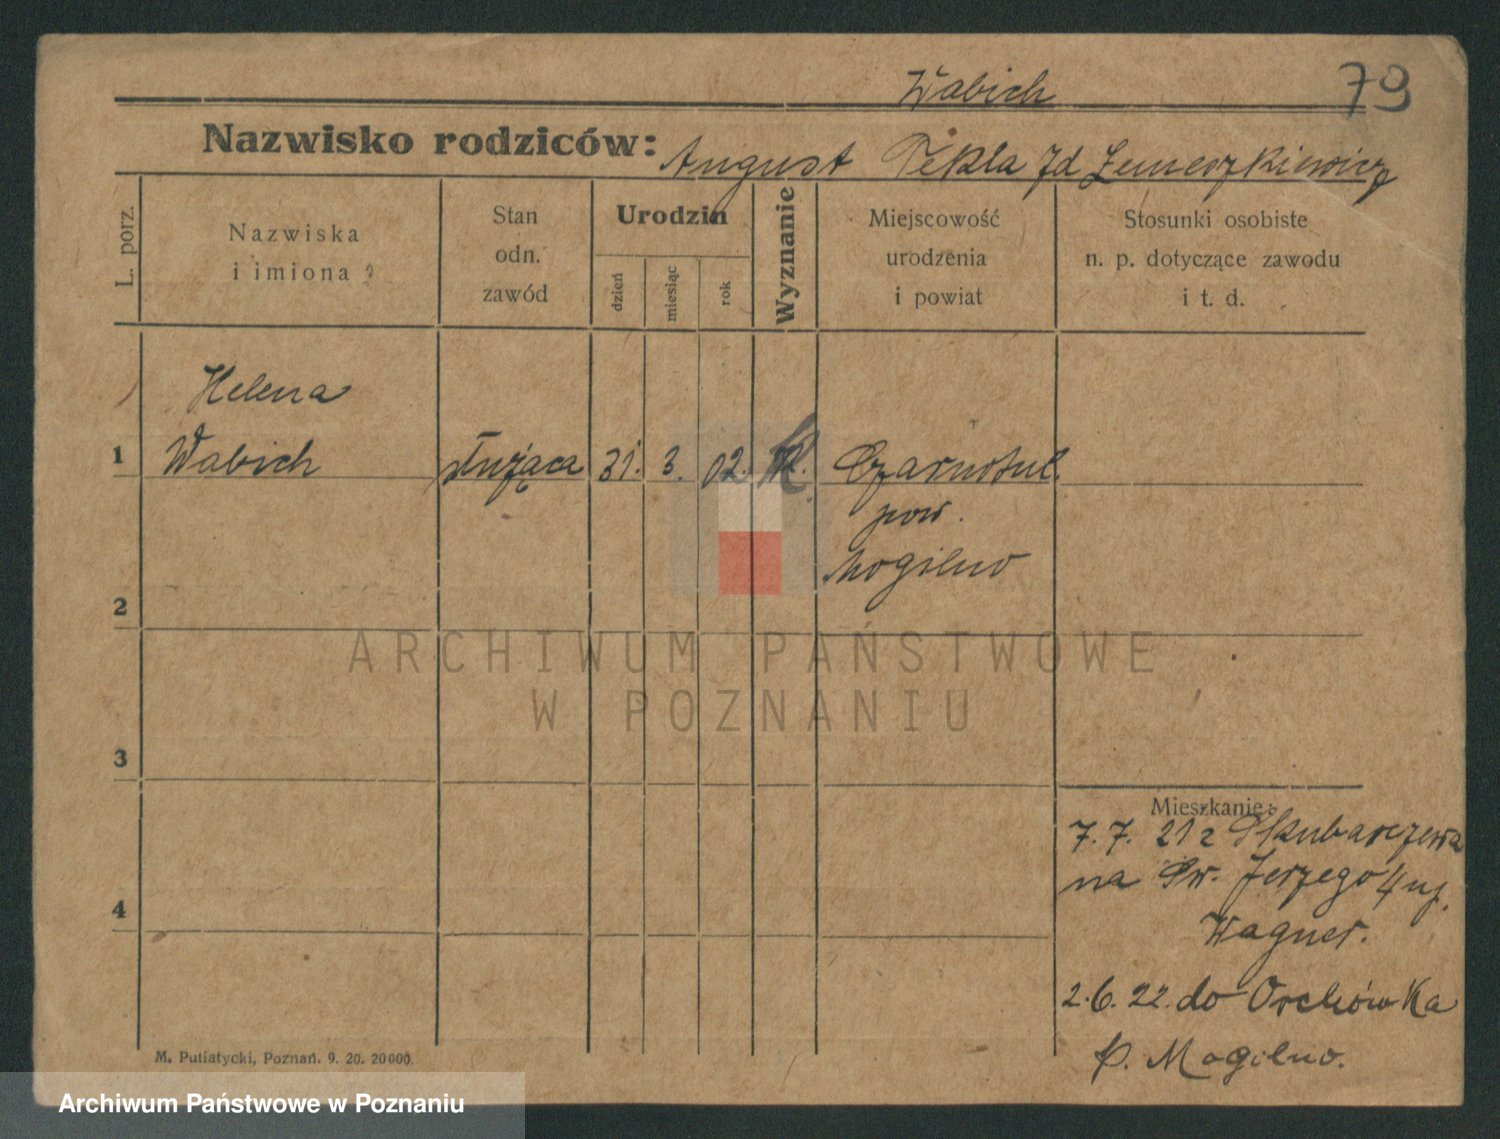 Wabich
79
Nazwisko rodziców: August Tekla
L. porz.
Nazwiska
i imiona
Stan
odn.
zawód
Urodzin
dzień
miesiąc
rok
Wyznanie
Miejscowość
urodzenia
i powiat
Stosunki osobiste
n. p. dotyczące zawodu
i t. d.
Helena
1 Wabich służąca 31. 3. 02. k. Czarnotul.
pow.
Mogilno
2
ARCHIWUM PAŃSTWOWE
W POZNANIU
3
Mieszkanie:
7. 7. 21 z Skubarczewa
na Św. Jerzego 4 uj.
4
Wagner.
2. 6. 22. do Orchówka
p. Mogilno.
M. Putiatycki, Poznań. 9. 20. 20000.
Archiwum Państwowe w Poznaniu